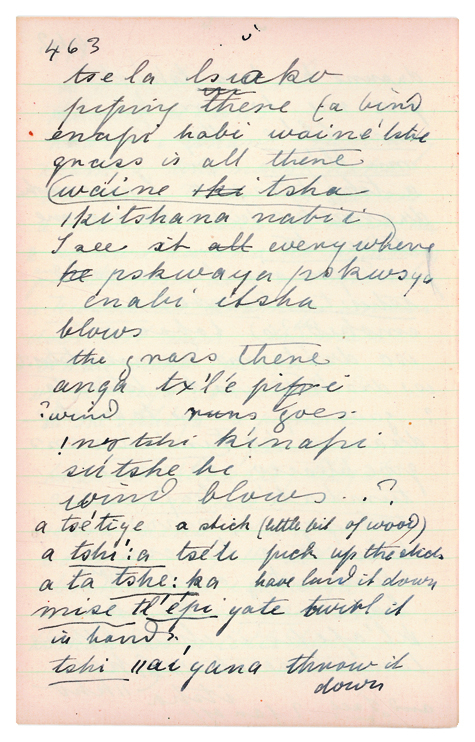 463
tse la lsuako
piping there (a bird
enapi habi wainé
grass is all there
(wáine tsha
ikitshana nabiii
I see it all everywhere
pskwaya pskwaya
enabi itsha
blows
the grass there
anga tx'l'é
? wind runs goes.
kinapi
sútshe bi
wind blows . . ?
a tsétiye a stick (little bit of wood)
a tshi:a tséti pick up the stick
a ta tshe:ka have laid it down
mise tl'épi yate twirl it
in hands.
tshi ||aíyana throw it
down